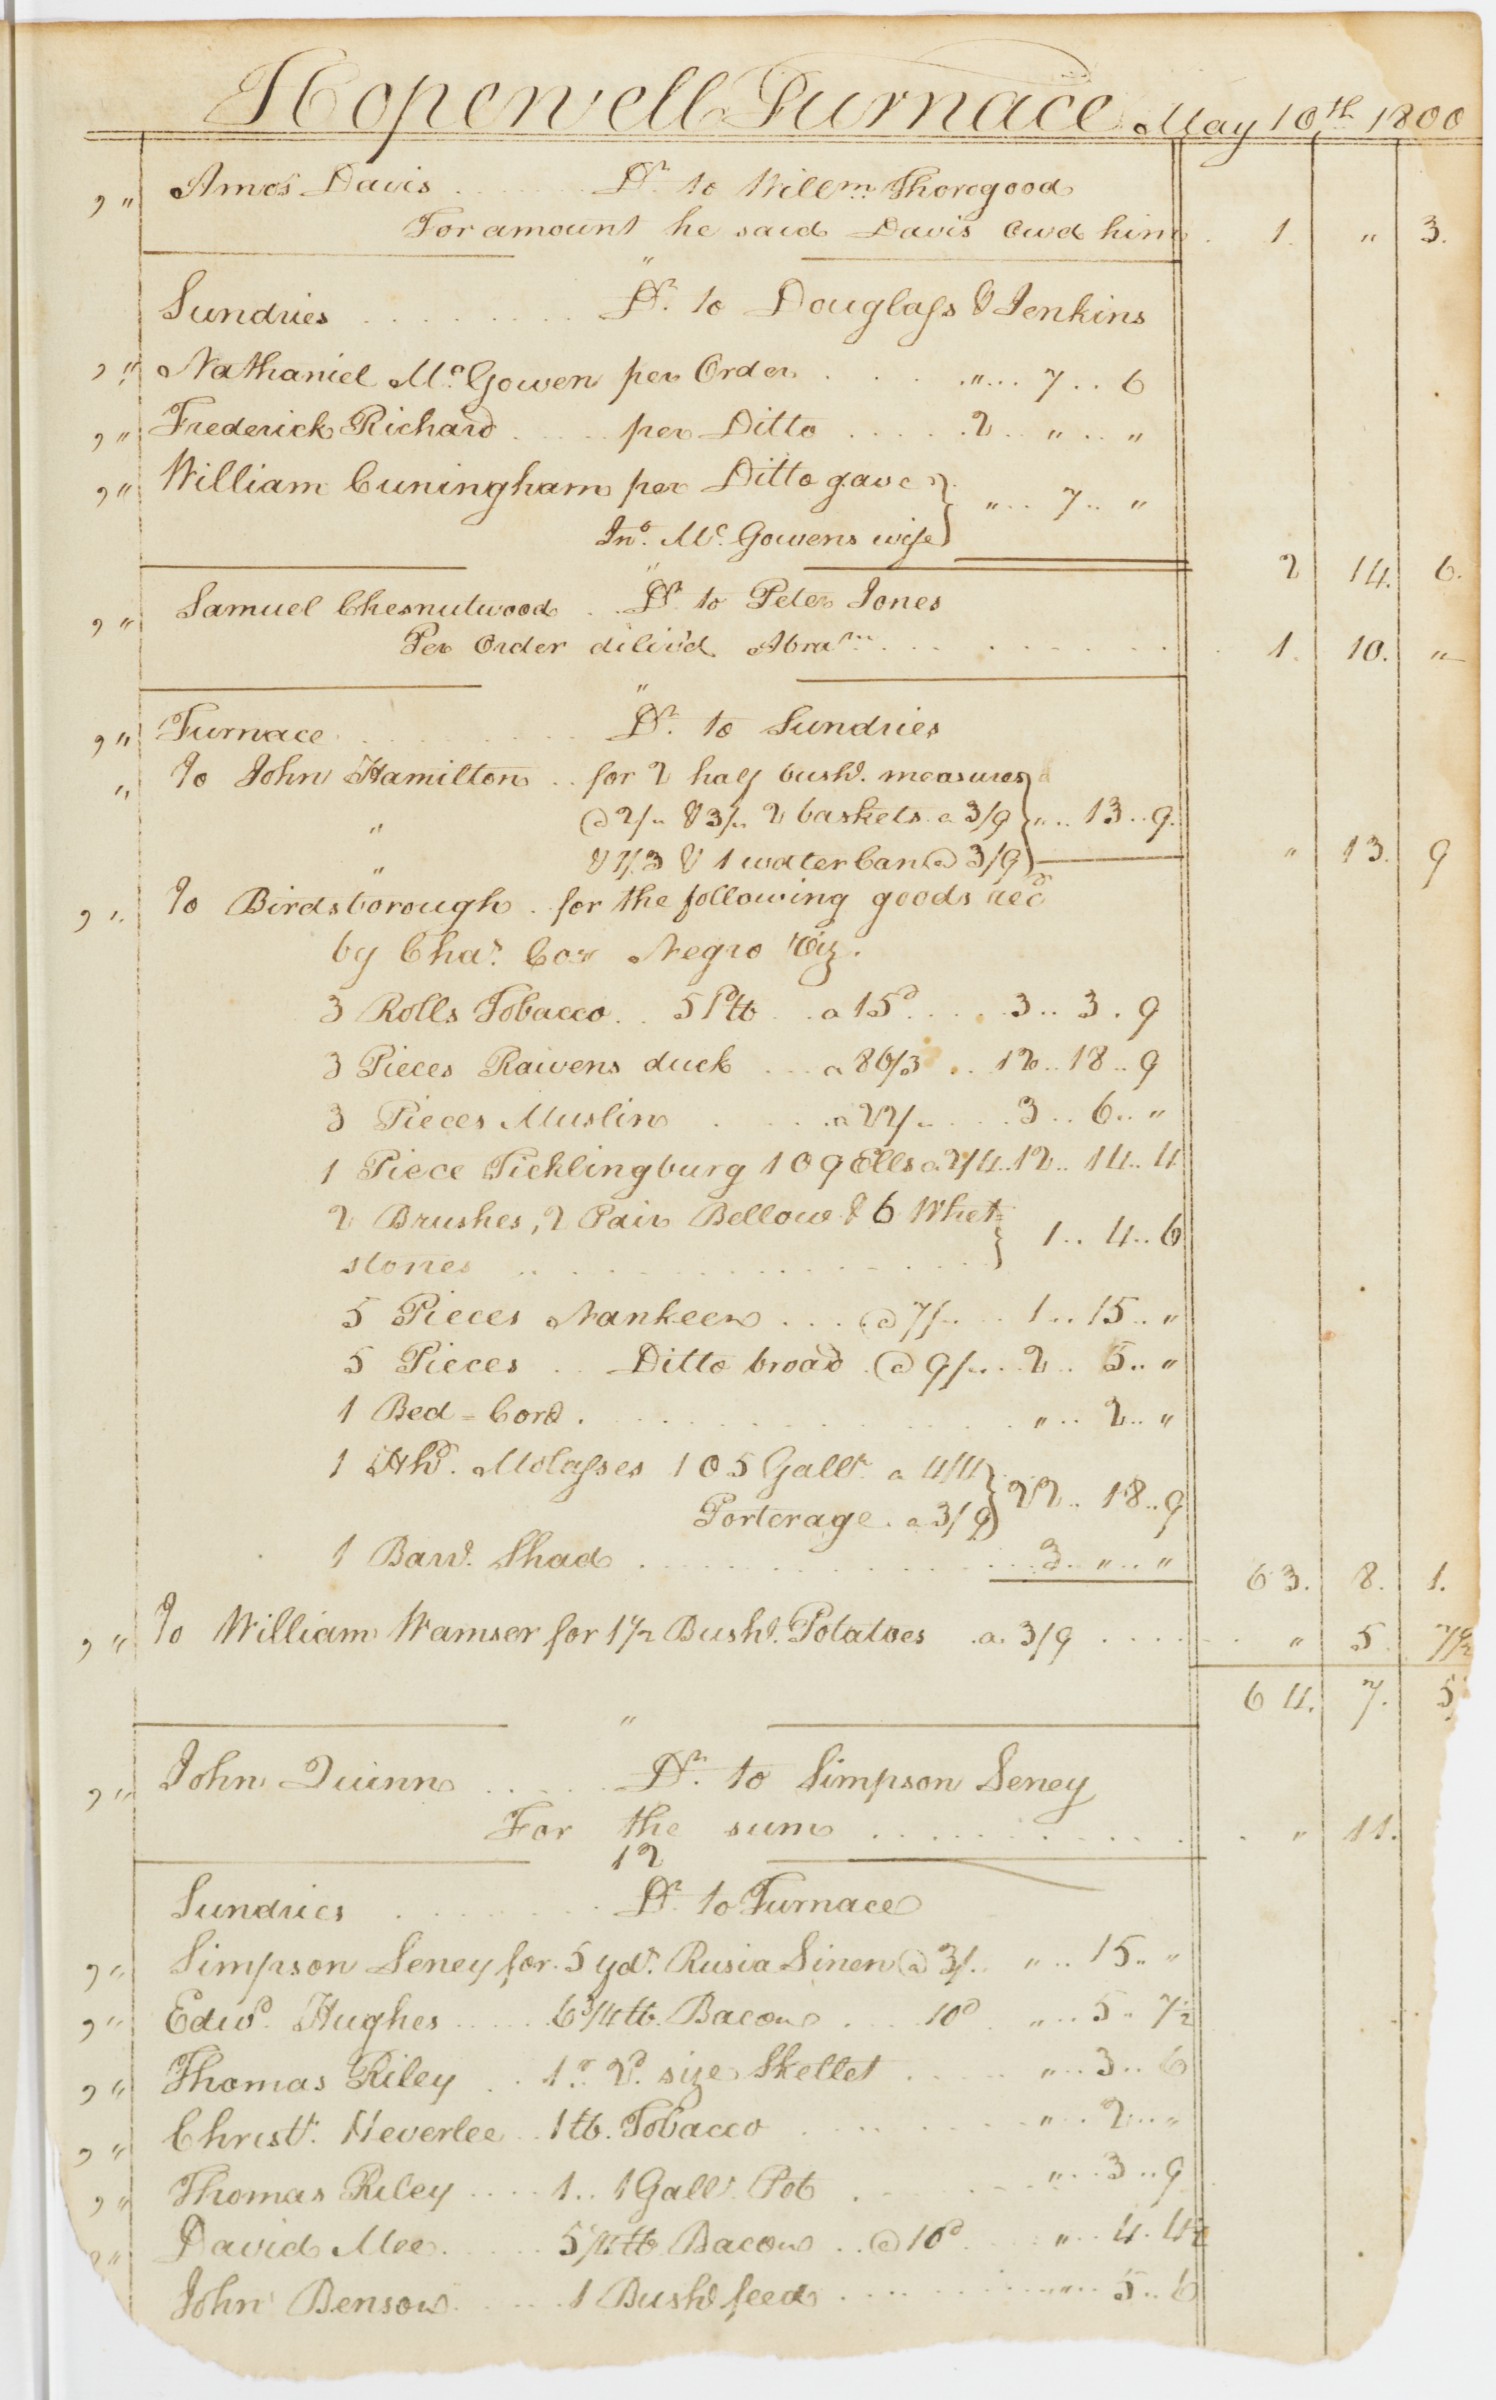 Hopewell Furnace May 10th 1800
,, " Amos Davis . . . . Dr. to Willm. Thorogood
For amount he said Davis owd him . 1. " 3.
"
Sundries . . . . . . . . Dr. to Douglass & Jenkins
,, " Nathaniel Mc.Gowen per Order . . . . " .. 7 .. 6
,, " Frederick Richard . . . . per Ditto . . . . . 2 .. " .. "
,, " William Cuningham per Ditto gave } " .. 7 .. "
Jno. Mc. Gowens wife
2 14. 6.
"
,, " Samuel Chesnutwood . . Dr. to Peter Jones
Per Order diliv'd Abram . . . . . . . 1. 10. "
"
,, " Furnace . . . . . . . . Dr. to Sundries
" To John Hamilton . . for 2 half bushl. measures
" @ 2/" & 3/" 2 baskets a 3/9 } " .. 13 .. 9.
" & 1/3 & 1 water Can @ 3/9 " 13. 9
,, " To Birdsborough . for the following goods recd
by Chas. Cox Negro Viz.
3 Rolls Tobacco . . 51 lb . . a 15d . . . . 3 .. 3 . 9
3 Pieces Raivens duck . . . a 86/3 . . 12 .. 18 .. 9
3 Pieces Muslin . . . . a 22/" . . . . 3 .. 6 .. "
1 Piece Ticklingburg 109 Ells a 2/4 .. 12 .. 14 .. 4
2 Brushes, 2 Pair Bellow & 6 Whet= } 1 .. 4 .. 6
stones . . . . . . . . . . . . .
5 Pieces Nankeen . . . @ 7/" . . 1 .. 15 .. "
5 Pieces . . Ditto broad . @ 9/" . . 2 .. 5 .. "
1 Bed = Cord . . . . . . . . . . . . " .. 2 .. "
1 Hhd. Molasses 105 Galls. a 4/4 } 22 .. 18 .. 9
Porterage . a 3/9
1 Barl. Shad . . . . . . . . . . . . 3 .. " .. " 63. 8. 1.
,, " To William Wamser for 1 1/2 Bushl. Potatoes . a. 3/9 . . . . . " 5. 7 1/2
64. 7. 5
"
,, " John Quinn . . . . . Dr. to Simpson Seney
For the sum . . . . . . . . . . " 11.
12
Sundries . . . . . . . Dr. to Furnace
,, " Simpson Seney for 5 yds. Rusia Linen @ 3/" " .. 15 .. "
,, " Edwd. Hughes . . . . 6 3/4 lb. Bacon . . . . 10d . " .. 5 .. 7 1/2
,, " Thomas Riley . . 1 .. 2d. size Skellet . . . . . " .. 3 .. 6
,, " Christr. Heverlee . . 1 lb. Tobacco . . . . . . . " .. 2 .. "
,, " Thomas Riley . . . . 1 .. 1 Galln. Pot . . . . . " .. 3 .. 9
,, " David Mee . . . . . 5 1/4 lb Bacon . . @ 10d . . . " .. 4 . 4 1/2
John Benson . . . . . 1 Bushl feed . . . . . . . " .. 5 .. 6